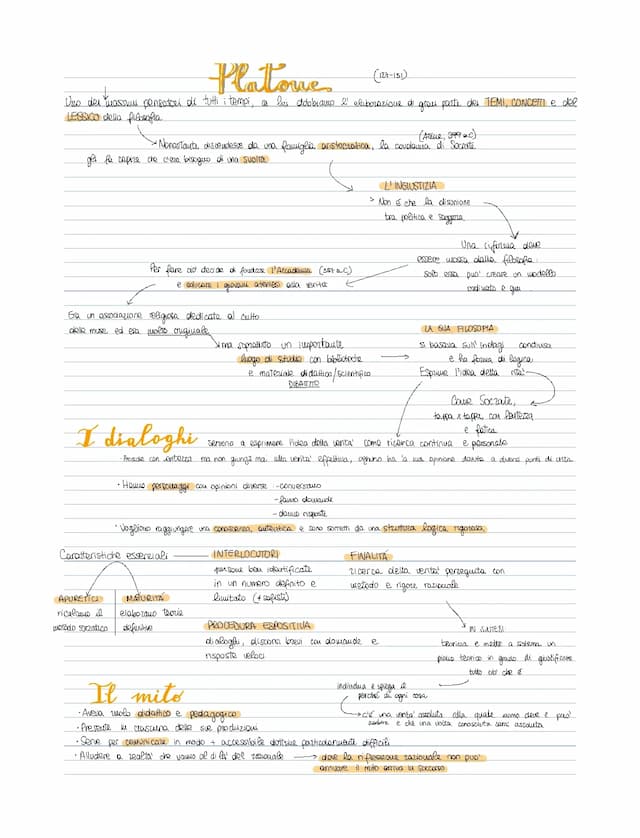 Platone
Uno dei massimi pensatori di tutti i tempi, a lui dobbiamo l'elaborazione di gran parte dei TEMI, CONCETTI e del
LESSICO della filosofia
Nonostante discendesse da una famiglia aristocratica, la condanna di Socrate
(Atene, 399 a.C)
gli fa capire che c'era bisogno di una svolta
L'INGIUSTIZIA
> Non è che la disunione
tra politica e saggezza
Una riforma deve
essere mossa dalla filosofia:
solo essa può creare un modello
ordinato e
Per fare ciò decide di fondare l'Accademia (387 a.C)
e educare i giovani ateniesi alla verità
Era un'associazione religiosa dedicata al culto
delle muse ed era molto originale
ma soprattutto un importante
luogo di studio con biblioteche
e materiale didattico/scientifico
DIBATTITI
LA SUA FILOSOFIA
si basava sull'indagine condivisa
e ha forma di
Esprime l'idea della
Come Socrate,
tappa x tappa, con lentezza
e fatica
I dialoghi servono a esprimere l'idea della verità come ricerca continua e personale
con certezza ma non giunge mai alla verità effettiva, ognuno ha la sua opinione dovuta a diversi punti di vista
• Hanno personaggi con opinioni diverse - conversano
- fanno domande
- danno risposte
• Vogliono raggiungere una conoscenza autentica e sono sorretti da una struttura logica rigorosa
Caratteristiche essenziali
INTERLOCUTORI
persone ben identificate
in un numero definito e
limitato
FINALITÀ
ricerca della verità perseguita con
metodo e rigore razionale
APORETICI
ricalcano il
metodo socratico
MATURITÀ
elaborano teorie
definitive
PROCEDURA ESPOSITIVA
dialoghi, discorsi brevi con domande e
risposte veloci
IN SINTESI
teorizza e mette a sistema un
piano teorico in grado di giustificare
tutto ciò che è
individua e spiega il
perché di ogni cosa
c'è una verità assoluta alla quale uomo deve e può
e che una volta conosciuta sarà assoluta
Il mito
• Aveva ruolo didattico e pedagogico
• Presente in ciascuna delle sue produzioni
• Serve per comunicare in modo + accessibile dottrine particolarmente difficili
• Alludere a realtà che vanno al di là del razionale
dove la riflessione razionale non può
arrivare il mito arriva in soccorso